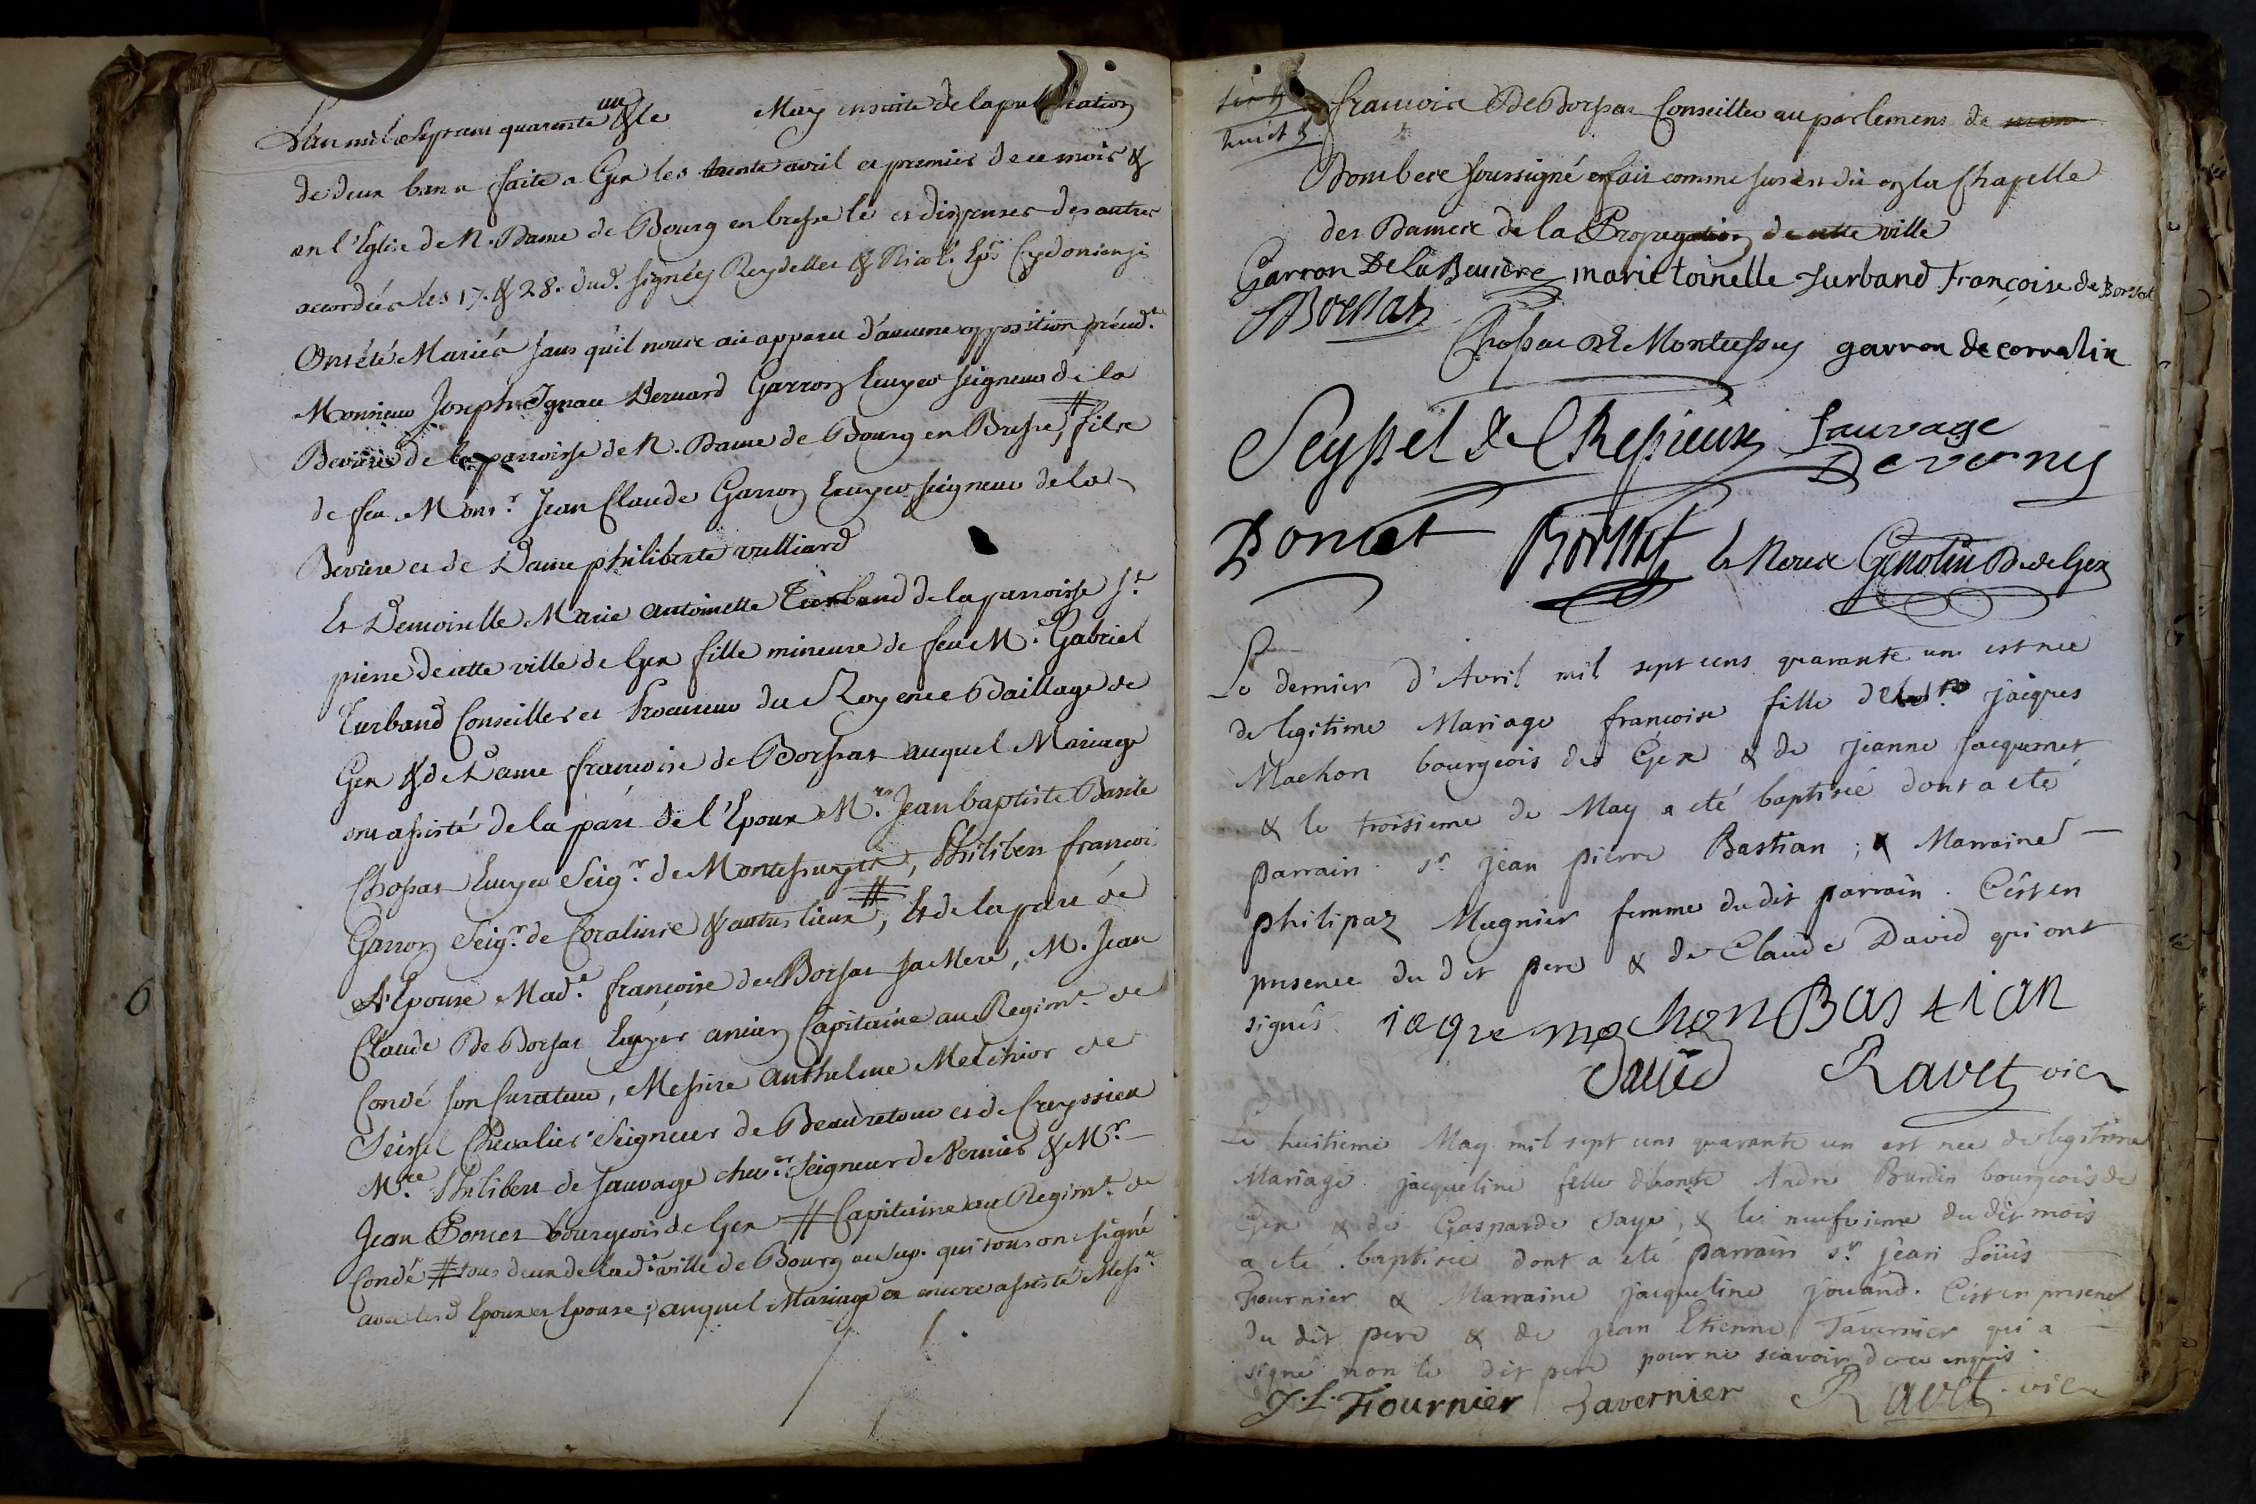 L'an mil sept cent quarante un & le May ensuite de la publication
de deux bans faite a Gex les trente avril et premier de ce mois &
en l'Eglise de N. Dame de Bourg en bresse le et dispenses des autres
accordées les 17. & 28. dud. signées Reydellet & Nicol. Eps Cydoniensis
Ont été Mariés sans qu'il nous ait apparu d'aucune opposition
Monsieur Joseph Ignace Bernard Garron Ecuyer Seigneur de la
Beviere de la parroisse de N. Dame de Bourg en Bresse, # fils
de feu Monsr. Jean Claude Garron Ecuyer Seigneur de la
Beviere et de Dame philiberte vulliard
Et Demoiselle Marie antoinette Turband de la parroisse St
pierre de cette ville de Gex fille mineure de feu Me. Gabriel
Turband Conseiller et Procureur du Roy en ce Baillage de
Gex & de Dame francoise de Borssat auquel Mariage
ont assisté de la part de l'Epoux Mre. Jean baptiste Basile
Chossat Ecuyer Seigr. de Montessuy, Philibert francois
Garron Seigr. de & autres lieux #, Et de la part de
l'Epouse Made. françoise de Borsat sa Mere, M. Jean
Claude De Borsat Ecuyer ancien Capitaine au Regimt. de
Condé son Curateur, Messire anthelme Melchior de
Seissel Chevalier Seigneur de Beauretour et de Creyssieu
Mre. Philibert de Sauvage chever. Seigneur de Vernier & Mr.
Jean Poncet bourgeois de Gex # Capitaine au Regimt. de
Condé # tous deux de lad. ville de Bourg qui tous ont signé
avec lesd Epoux et Epouse ; auquel Mariage a encore assisté Messre
francois De Borssat Conseiller au parlement de
Dombes soussigné et fait comme sus est dit en la Chapelle
des Dames de la Propagation de cette ville
Garron De la Beviere marie toinelle turband Françoise de Borsat
Borssat
Chossat De Montessuy garron de corralin
Seyssel De CRessieux Sauvage
De vernej
Poncet Borssat Le Roux Genolin De de Gex
Le dernier d'Avril mil sept cens quarante un est née
de legitime Mariage francoise fille de jacques
Machon bourgeois de Gex & de jeanne jacquemet
& le troisieme de May a eté baptisée dont a eté
parrain sr jean pierre Bastian ; & Marraine
philipaz Mugnier femme du dit parrain. C'est en
presence du dit pere & de Claude David qui ont
signés. iaque mochon BAStian
David Ravet vic
Le huitieme May mil sept cens quarante un est née de legitime
Mariage jacqueline fille d'honte André Burdin bourgeois de
Gex & de Gasparde Saye, & le neufvieme du dit mois
a eté baptisée dont a eté parrain sr jean Loüis
Fournier & Marraine jacqueline jouand. C'est en presence
du dit pere & de jean Etienne Tavernier qui a
signé non le dit pere pour ne scavoir de ce enquis.
J. L. Fournier Tavernier Ravet vic